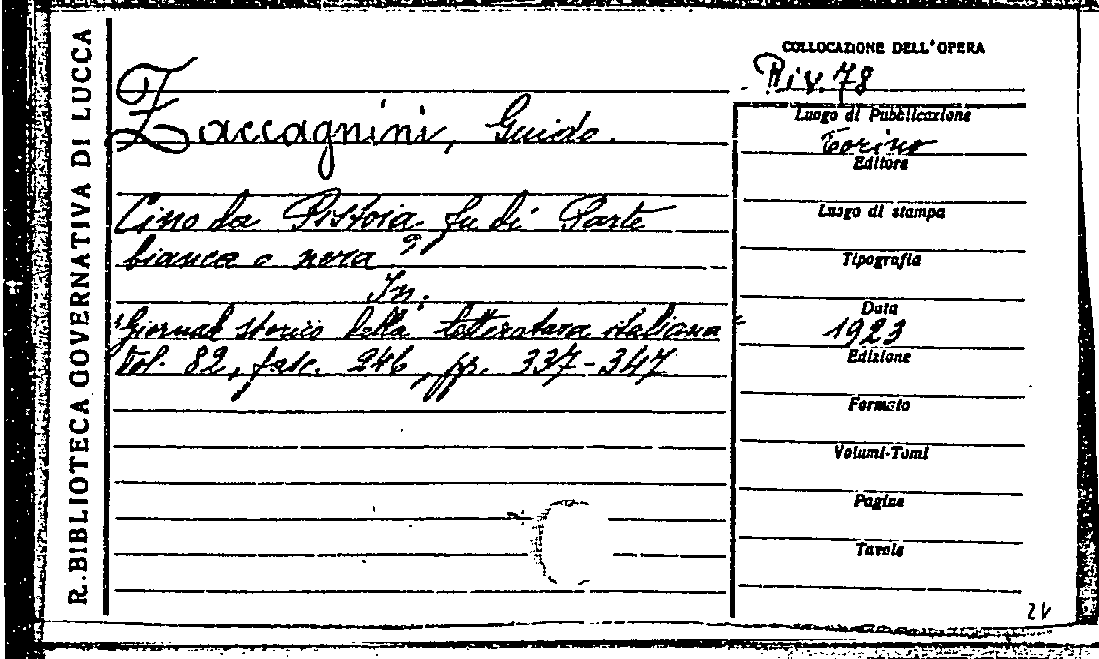 R. BIBLIOTECA GOVERNATIVA DI LUCCA
Zaccagnini, Guido.
Cino da Pistoia fu di Parte
bianca o nera?
In:
"Giornale storico della letteratura italiana"
Vol. 82, fasc. 246, pp. 337-347
COLLOCAZIONE DELL'OPERA
Riv. 78
Luogo di Pubblicazione
Torino
Editore
Luogo di stampa
Tipografia
Data
1923
Edizione
Formato
Volumi-Tomi
Pagine
Tavole